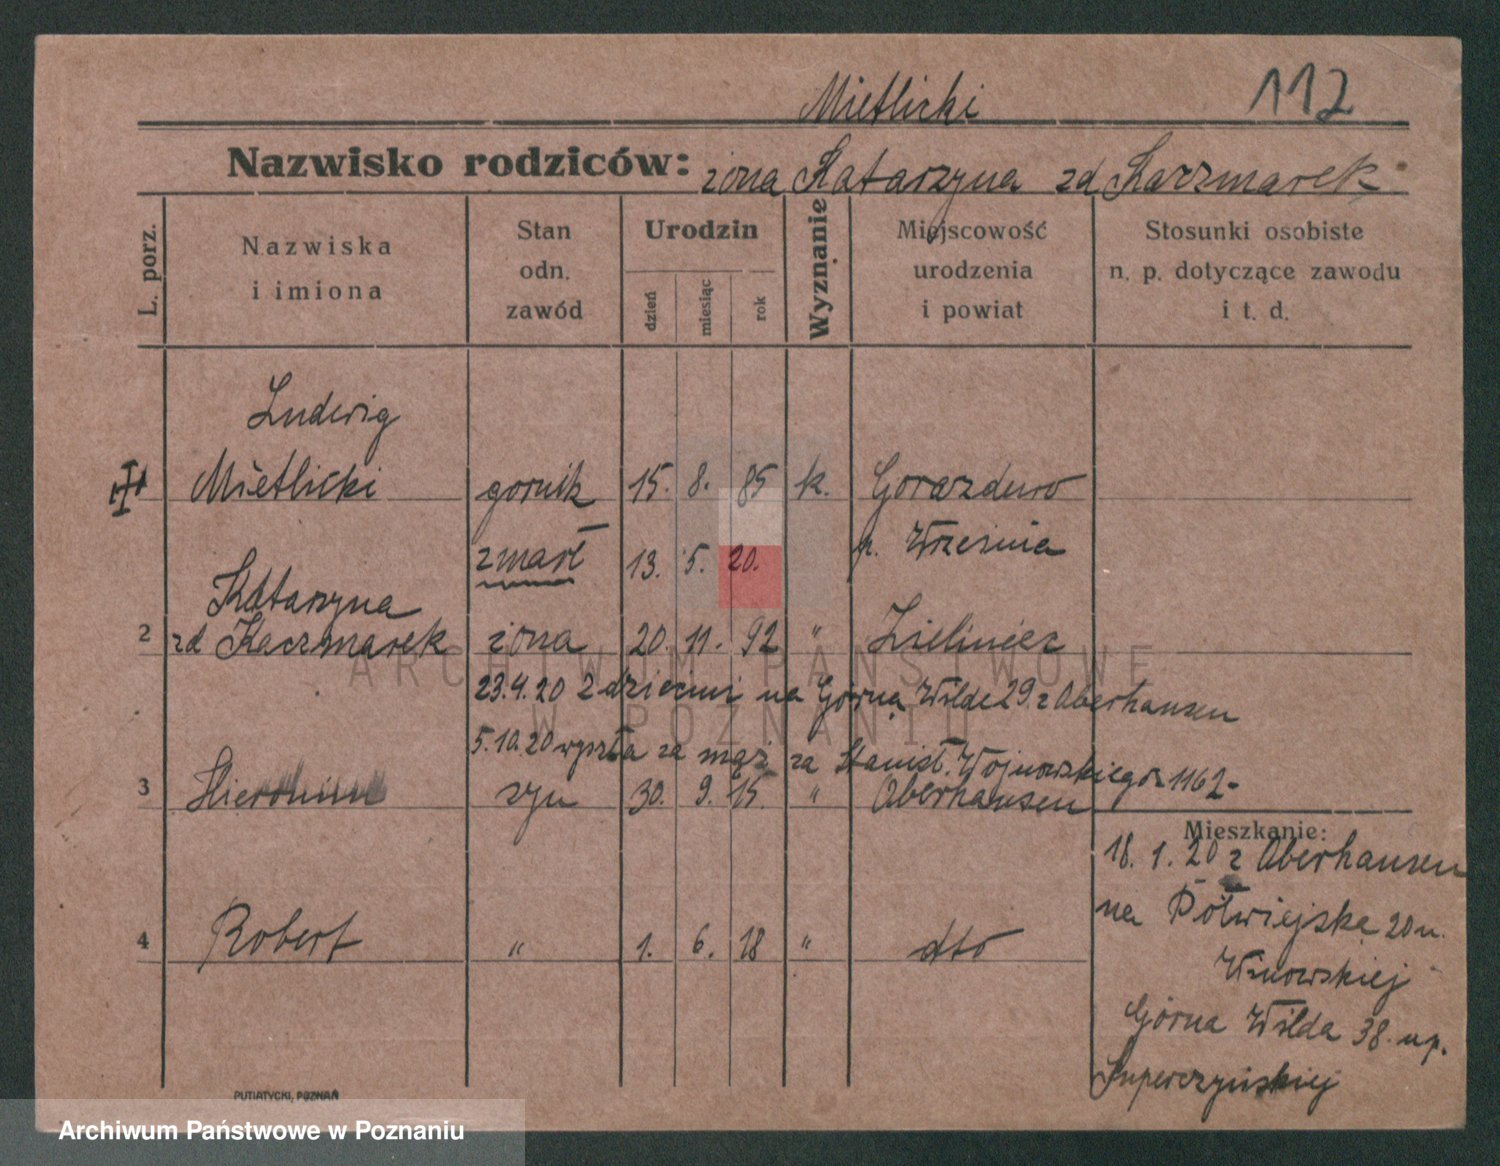 Mietlicki 112
Nazwisko rodziców: żona Katarzyna zd Kaczmarek
L. porz.
Nazwiska i imiona
Stan odn. zawód
Urodzin
dzień miesiąc rok
Wyznanie
Miejscowość urodzenia i powiat
Stosunki osobiste n. p. dotyczące zawodu i t. d.
Ludwig
Mietlicki gornik 15. 8. 85 k. Gorazdowo
zmarł 13. 5. 20. p. Września
Katarzyna
2 zd Kaczmarek żona 20. 11. 92 " Zieliniec
23.4.20 2 dziećmi na Górną Wilde 29 z Oberhausen
5.10.20 wyszła za mąż za Stanisł. Wojnowskiego 1162-
3 Hieronim syn 30. 9. 15. " Oberhausen
Mieszkanie:
18. 1. 20 z Oberhausen
na Półwiejską 20 u.
4 Robert " 1. 6. 18 " dto
Górna Wilda 38. u p.
PUTIATYCKI, POZNAŃ
ARCHIWUM PAŃSTWOWE
W POZNANIU
Archiwum Państwowe w Poznaniu